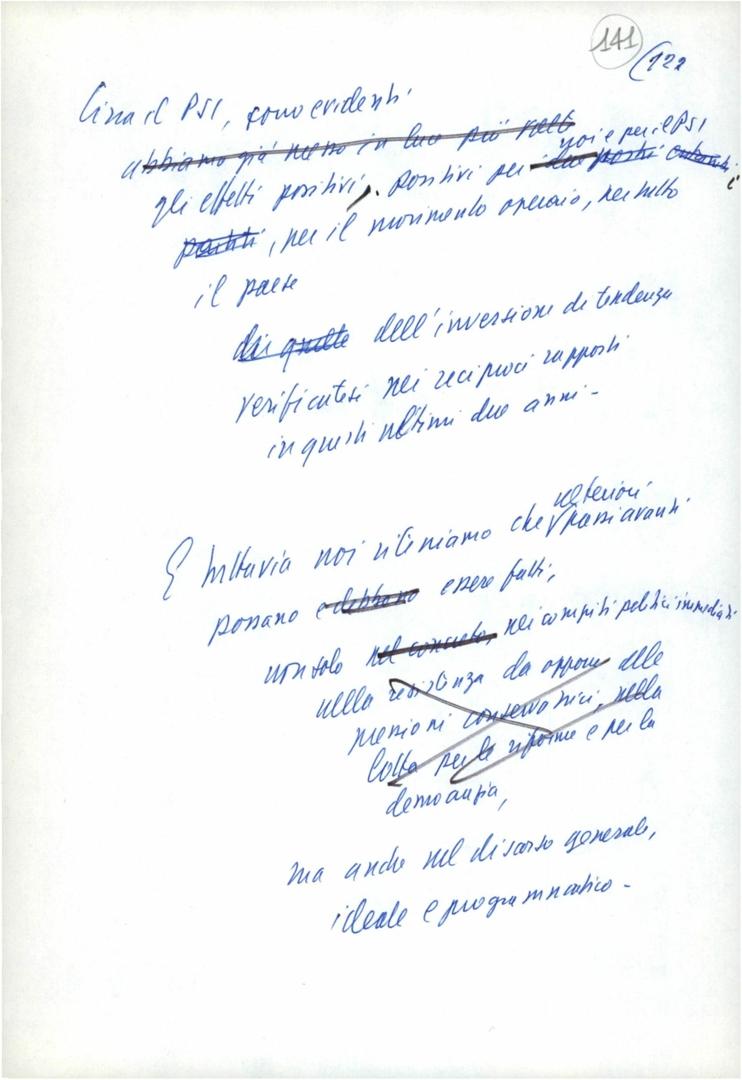 141
(122
Circa il PSI, sono evidenti
abbiamo già messo in luce più volte
noi e per il PSI
gli effetti positivi, positivi per i due partiti
partiti, per il movimento operaio, per tutto
il paese
di quelle dell'inversione di tendenza
verificatasi nei reciproci rapporti
in questi ultimi due anni -
ulteriori
E tuttavia noi riteniamo che passi avanti
possano e debbano essere fatti,
non solo nel concreto, nei compiti politici immediati
nella resistenza da opporre alle
pressioni conservatrici, nella
lotta per le riforme e per la
democrazia,
ma anche nel discorso generale,
ideale e programmatico -